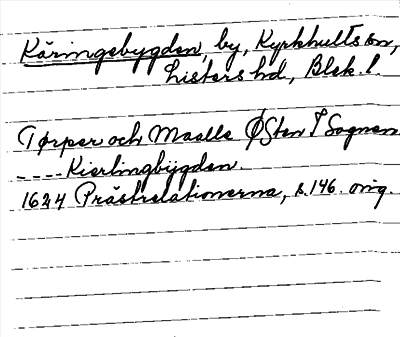 Käringebygden, by, Kyrkhults sn,
Listers hd, Blek. l.
Tørper och Maalle Østen I Sognen
---- Kierlingbÿgden.
1624 Prästrelationerna, s. 146. orig.